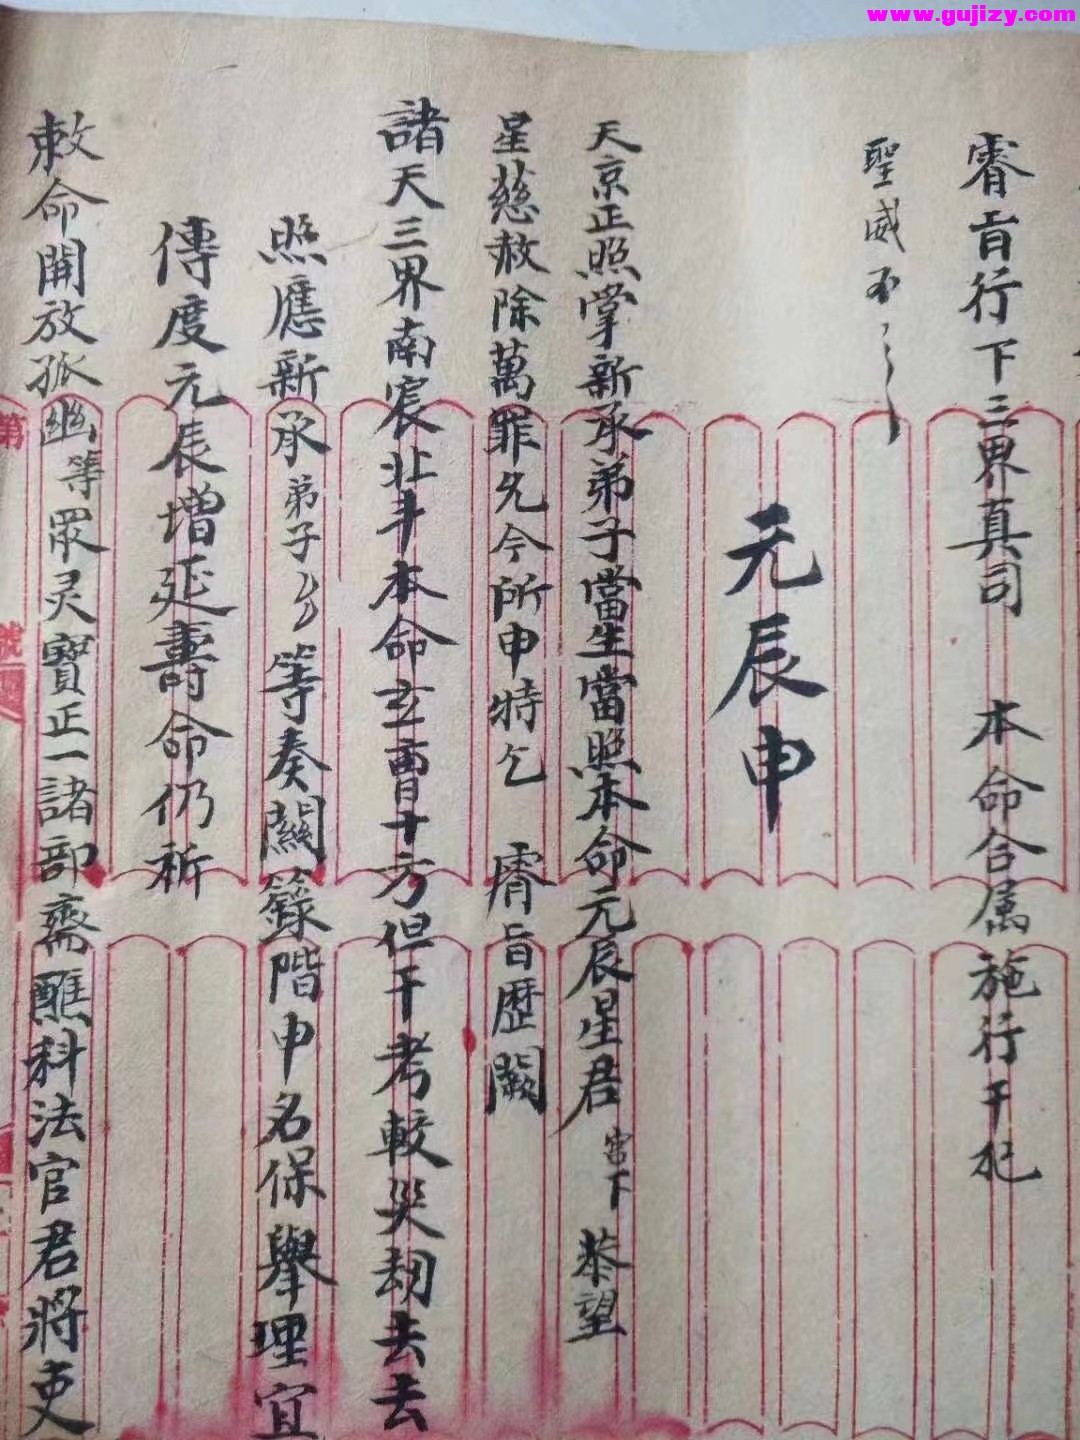 www.gujizy.com
睿旨行下三界真司 本命合属施行干犯
聖威不
元辰申
天京正照掌新承弟子當生當照本命元辰星君 下 恭望
星慈赦除萬罪允今所申特乞 睿旨歷闕
諸天三界南宸北斗本命玄曹十方但干考較災劫去去
照應新承弟子 等奏闕籙階申名保舉理宜
傳度元辰增延壽命仍祈
敕命開放孤幽等眾灵寶正一諸部齋醮科法官君將吏
第
號